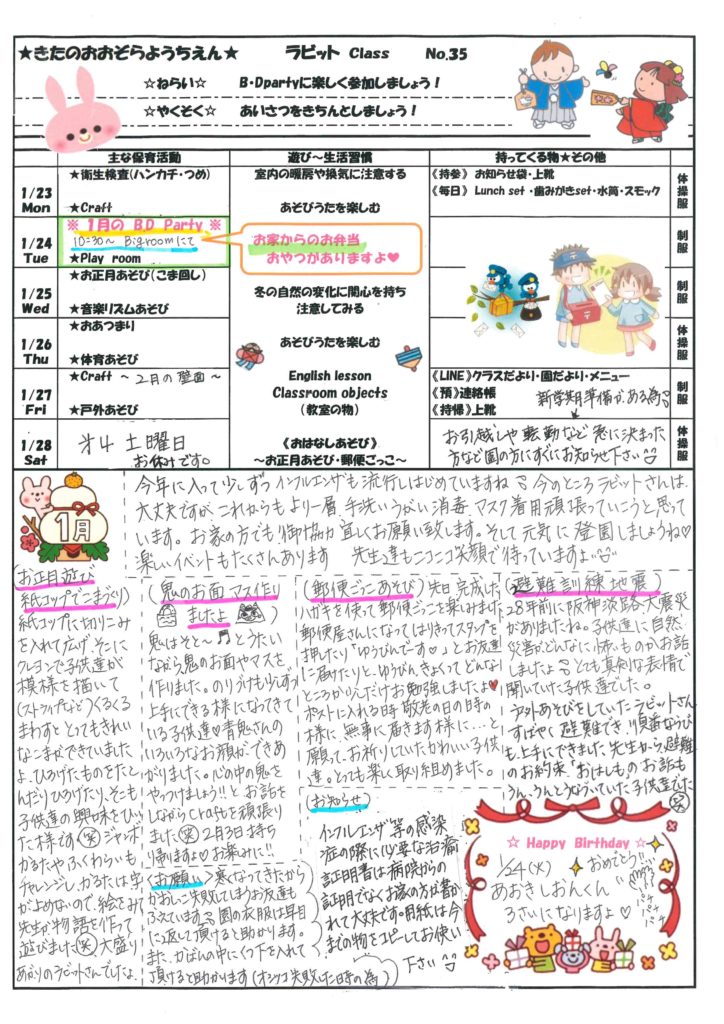 ★きたのおおぞらようちえん★ ラビット Class No.35
☆ねらい☆ B・Dpartyに楽しく参加しましょう！
☆やくそく☆ あいさつをきちんとしましょう！
主な保育活動 遊び～生活習慣 持ってくる物★その他
1/23 Mon
★衛生検査(ハンカチ・つめ)
★Craft
室内の暖房や換気に注意する
あそびうたを楽しむ
《持参》 お知らせ袋・上靴
《毎日》 Lunch set ・歯みがきset・水筒・スモック
体操服
1/24 Tue
※ 1月の B.D Party ※
10:30～ Bigroomにて
★Play room
お家からのお弁当
おやつがありますよ♥
制服
1/25 Wed
★お正月あそび(こま回し)
★音楽リズムあそび
冬の自然の変化に関心を持ち
注意してみる
制服
1/26 Thu
★おあつまり
★体育あそび
あそびうたを楽しむ
体操服
1/27 Fri
★Craft ～2月の壁面～
★戸外あそび
English lesson
Classroom objects
(教室の物)
《LINE》クラスだより・園だより・メニュー
《預》連絡帳
《持帰》上靴
新学期準備がある為
制服
1/28 Sat
才4 土曜日
お休みです。
《おはなしあそび》
～お正月あそび・郵便ごっこ～
お引越しや転勤など急に決まった
方など園の方にすぐにお知らせ下さい
体操服
1月
今年に入って少しずつインフルエンザも流行しはじめていますね 今のところラビットさんは、
大丈夫ですが、これからもより一層、手洗いうがい消毒、マスク着用頑張っていこうと思って
います。お家の方でも御協力宜しくお願い致します。そして元気に登園しましょうね♡
楽しいイベントもたくさんあります 先生達もニコニコ笑顔で待っていますよ
(お正月遊び
紙コップでこまづくり)
紙コップに切りこみ
を入れて広げ、そこに
クレヨンで子供達が
模様を描いて
(ストライプなど)くるくる
まわすととってもきれい
なこまができていました
よ。ひろげたものをたた
んだりひろげたり、そこも
子供達の興味をひい
た様です(笑)ジャンボ
かるたやふくわらいも
チャレンジし、かるたは字
がよめないので、絵をみて
先生が物語を作って
遊びました(笑)大盛り
あがりのラビットさんでしたよ。
(鬼のお面 マス作り
ましたよ)
鬼はそと～♬とうたい
ながら鬼のお面やマスを
作りました。のりづけも少しずつ
上手にできる様になってきて
いる子供達♡青鬼さんの
いろいろなお顔ができあ
がりました。心の中の鬼を
やっつけましょう!!とお話を
しながらCraftを頑張り
ました(笑)2月3日持ち
帰りますよ♡お楽しみに!!
(お願い) 寒くなってきたから
かおしっこ失敗してしまうお友達も
ふえています 園の衣服は早目
に返して頂けると助かります。
また、かばんの中にくつ下を入れて
頂けると助かります(オシッコ失敗した時の為)
(郵便ごっこあそび) 先日完成した
ハガキを使って郵便ごっこを楽しみました
郵便屋さんになってはりきってスタンプを
押したり「ゆうびんでーす♡」とお友達
に届けたりと、ゆうびんきょくってどんな
ところか少しだけお勉強しましたよ♥
ポストに入れる時 敬老の日の時の
様に、無事に届きます様に…と
願って、お祈りしていたかわいい子供
達。とっても楽しく取り組めました。
(お知らせ)
インフルエンザ等の感染
症の際に必要な治癒
証明書は病院からの
証明でなくお家の方が書か
れて大丈夫です。用紙は今
までの物をコピーしてお使い
下さい
(避難訓練 地震)
28年前に阪神淡路大震災
がありましたね。子供達に自然
災害がどんなに怖いものかお話
しましたよ とても真剣な表情で
聞いていた子供達でした。
アウトあそびをしていたラビットさん
すばやく避難でき、順番ならび
も上手にできました。先生から、避難
のお約束「おはしも」のお話も
うん、うんとうなづいていた子供達でした(笑)
☆ Happy Birthday ☆
1/24(火) おめでとう!!
あおきしおんくん
3さいになりますよ♡
パチ
パチ
パチ